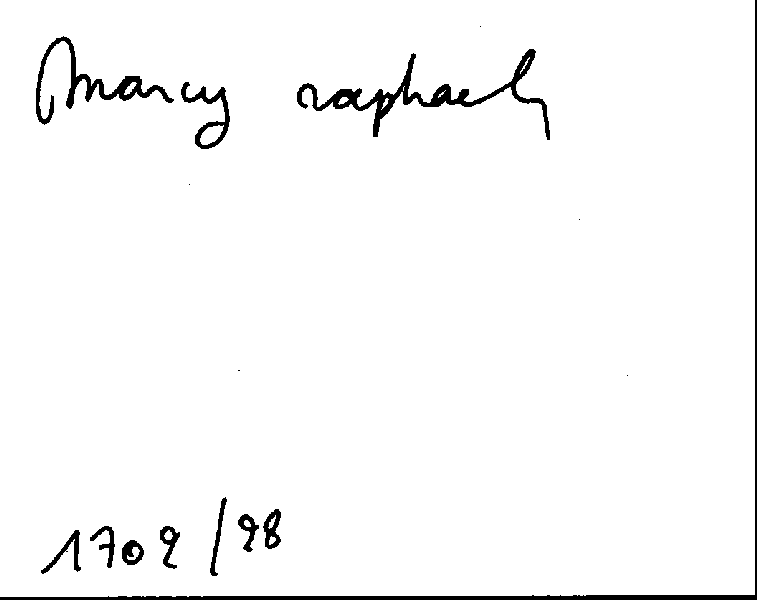 Marcy raphael
1702/98